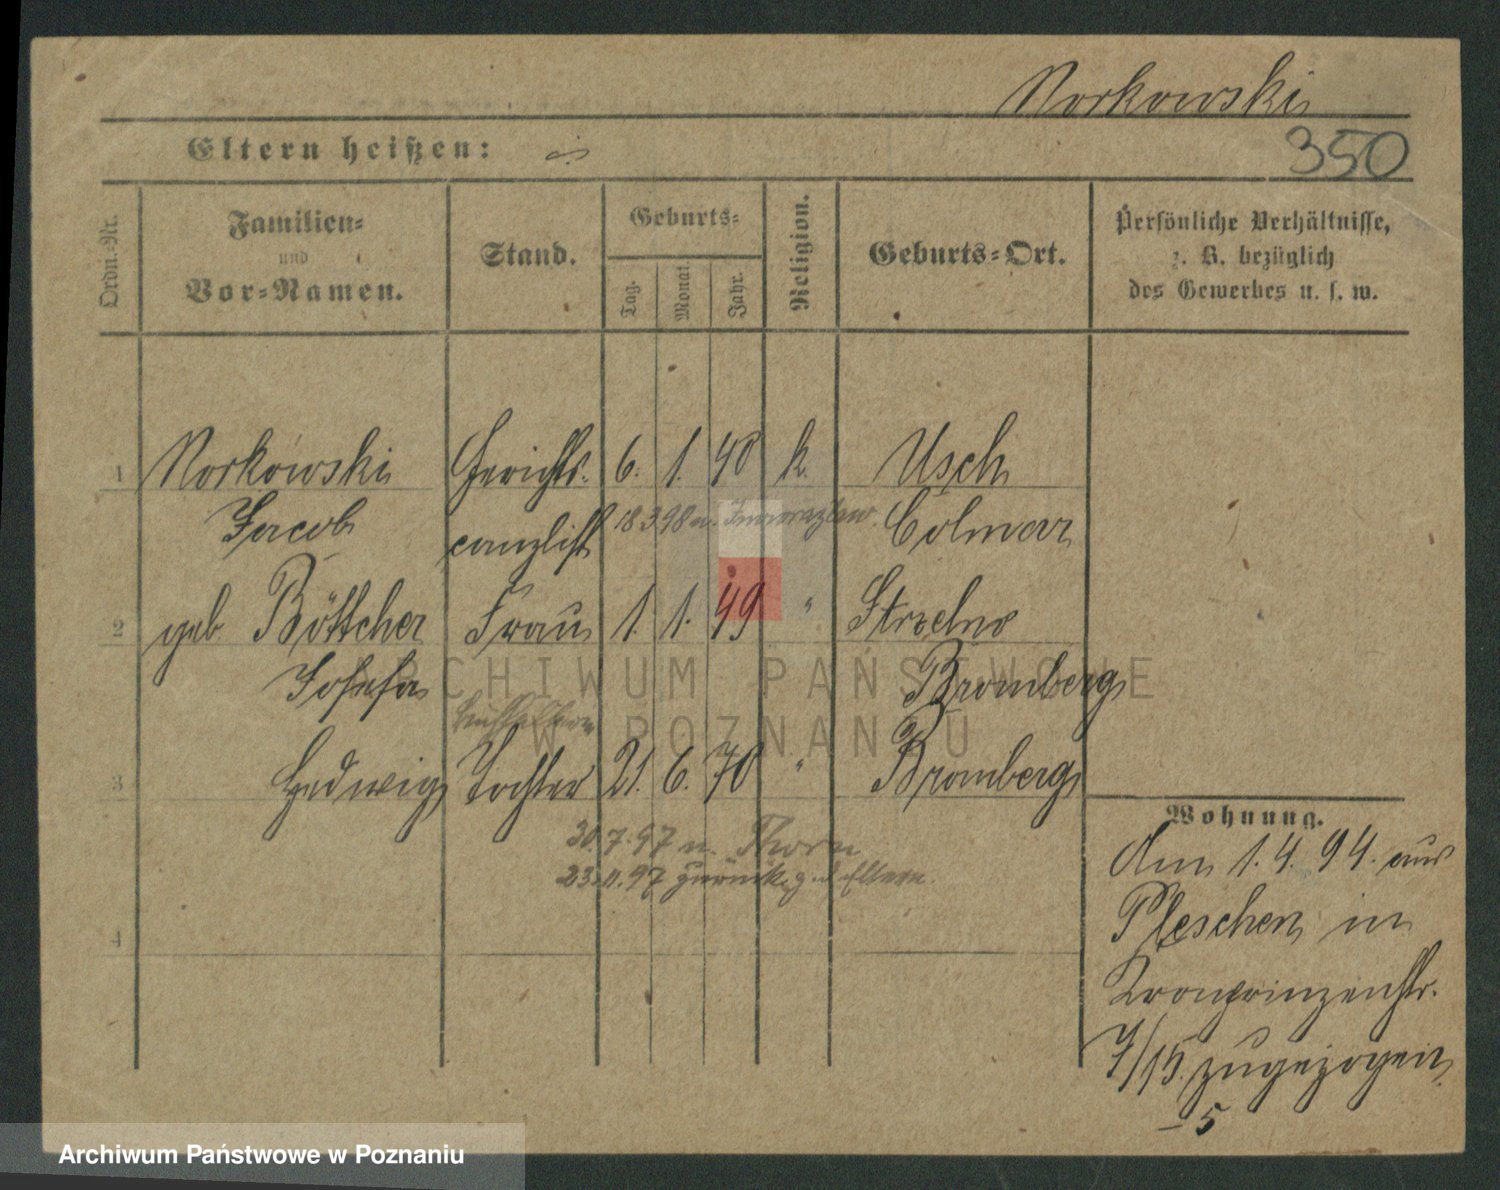 Norkowski
Eltern heißen:
350
Ordn.-Nr.
Familien-
und
Vor-Namen.
Stand.
Geburts-
Tag.
Monat.
Jahr.
Religion.
Geburts-Ort.
Persönliche Verhältnisse,
z. B. bezüglich
des Gewerbes u. s. w.
1 Norkowski Gerichts- 6. 1. 48 k. Usch
Jacob canzlist 18.3.98 n. Inowrazlaw. Colmar
2 geb Böttcher Frau 1. 1. 49 " Strzelno
Josefa Bromberg
3 Hedwig Tochter 21. 6. 70 " Bromberg
30.7.97 n. Thorn
23.11.97 zurück z. d. Eltern.
4
Wohnung.
Am 1.4.94. aus
Pleschen in
Kronprinzenstr.
7/15. zugezogen
5
ARCHIWUM PAŃSTWOWE
W POZNANIU
Archiwum Państwowe w Poznaniu